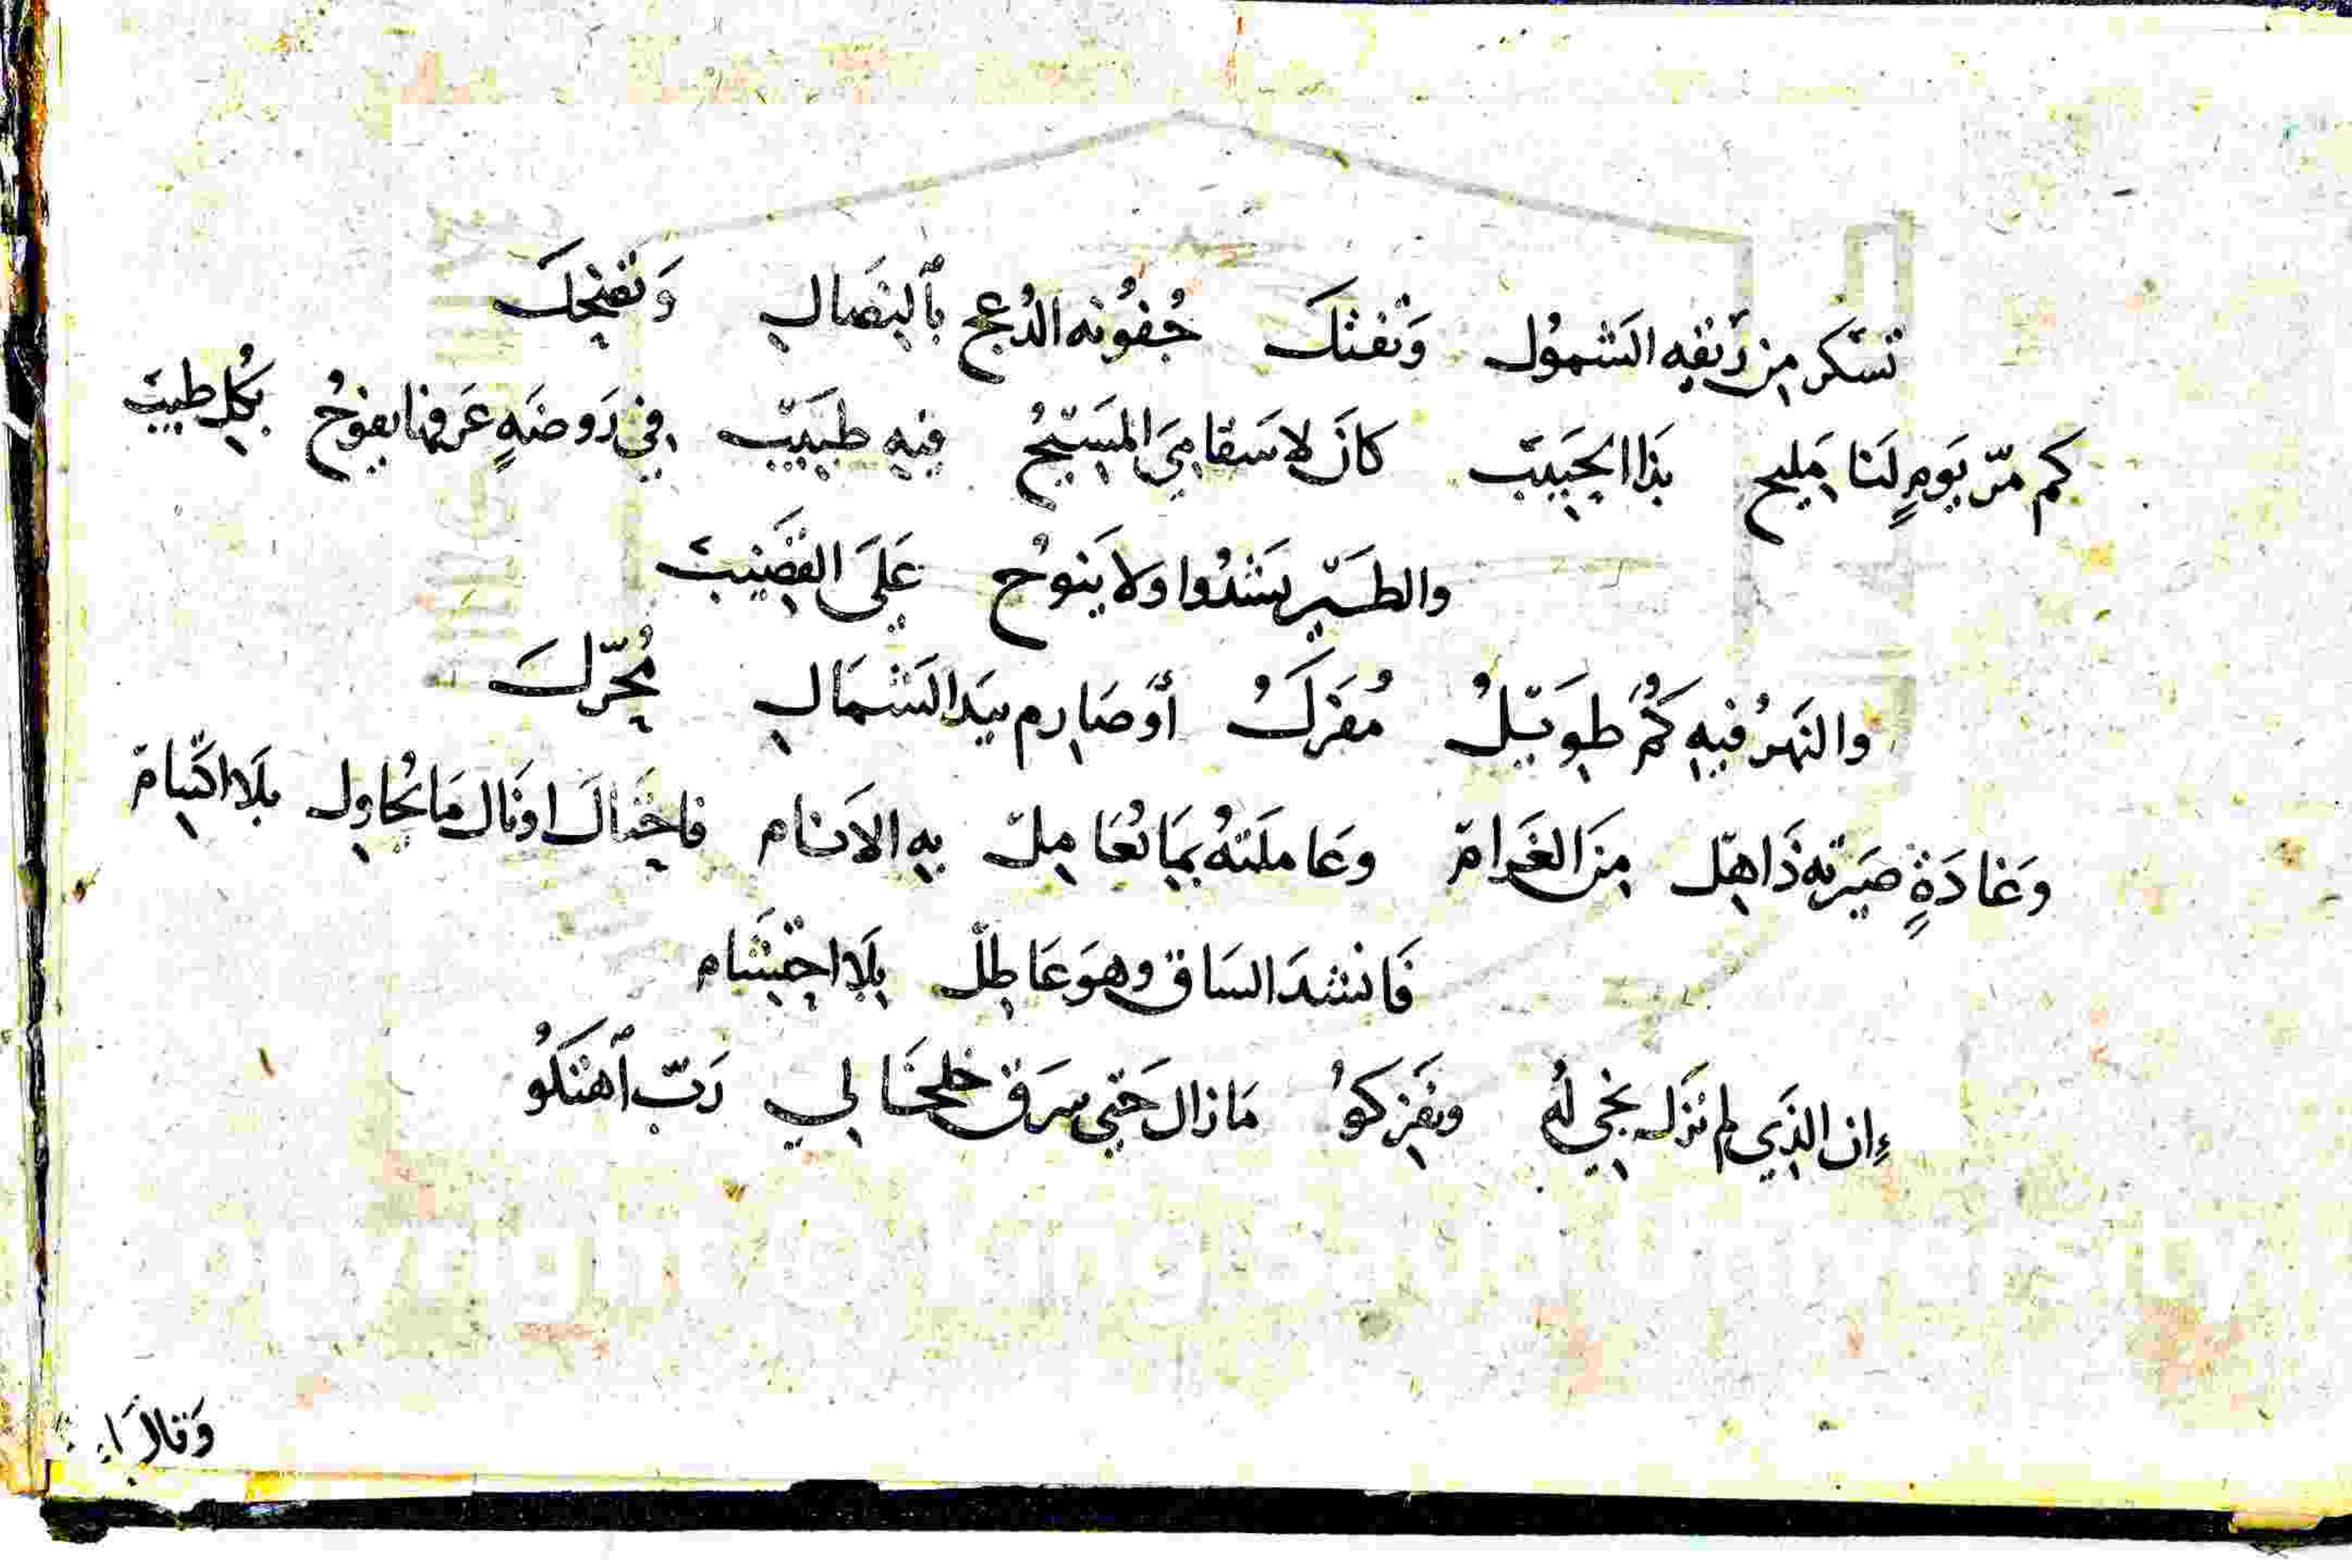 تسكر من ريقه الشمول وتفتك جفونه الدعج بالنصال وتضحك
كم مرّ يومٍ لنا مليح بذا الحبيب كان لاسقامي المسيح فيه طبيب في روضةٍ عرفها يفوح بكل طيب
والطير يشدوا ولا ينوح على القضيب
والنهر فيه كمٌ طويل مفرك أو صارم بيد الشمال محرك
وغادةٍ صيرته ذاهل من الغرام وعاملته بما تعامل به الانام فاحتال اذ نال ما يحاول بلا اكتتام
فانشد الساق وهو عاطل بلا احتشام
إن الذي لم نزل نخي له ونفركو ما زال حتى سرق خلخالي ربّ اهتكو
وقال
Copyright © King Saud University